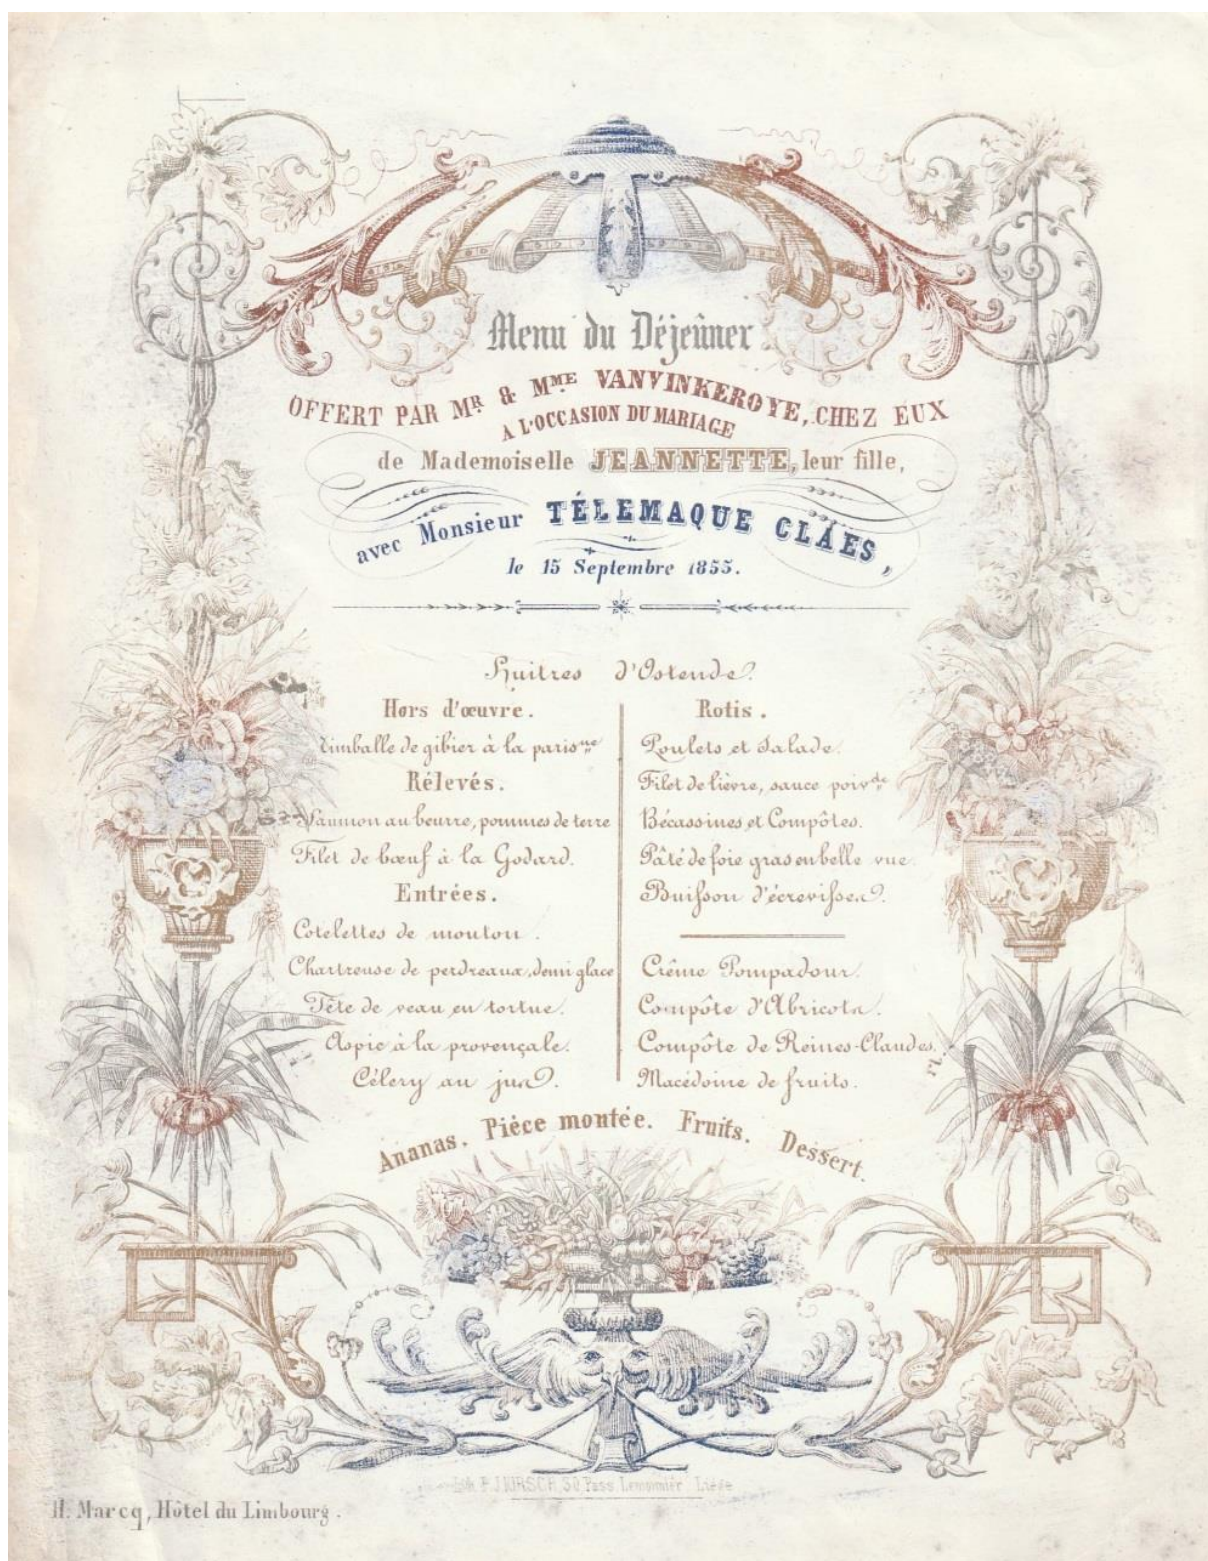 Menu du Déjeûner
OFFERT PAR MR & MME VANVINKEROYE, CHEZ EUX
A L'OCCASION DU MARIAGE
de Mademoiselle JEANNETTE, leur fille,
avec Monsieur TÉLEMAQUE CLAES,
le 15 Septembre 1855.
Huitres d'Ostende.
Hors d'œuvre.
Timballe de gibier à la parisne
Rélevés.
Saumon au beurre, pommes de terre
Filet de bœuf à la Godard.
Entrées.
Cotelettes de mouton.
Chartreuse de perdreaux, demi glace
Tête de veau en tortue.
Aspic à la provençale.
Célery au jus.
Rotis.
Poulets et Salade.
Filet de lièvre, sauce poivde
Bécassines et Compôtes.
Pâté de foie gras en belle vue.
Buisson d'écrevisses.
Crême Pompadour.
Compôte d'Abricots.
Compôte de Reines-Claudes.
Macédoine de fruits.
Ananas. Pièce montée. Fruits. Dessert.
Lith. P. J. KIRSCH, 50 Pass. Lemonnier Liége
H. Marcq, Hôtel du Limbourg.